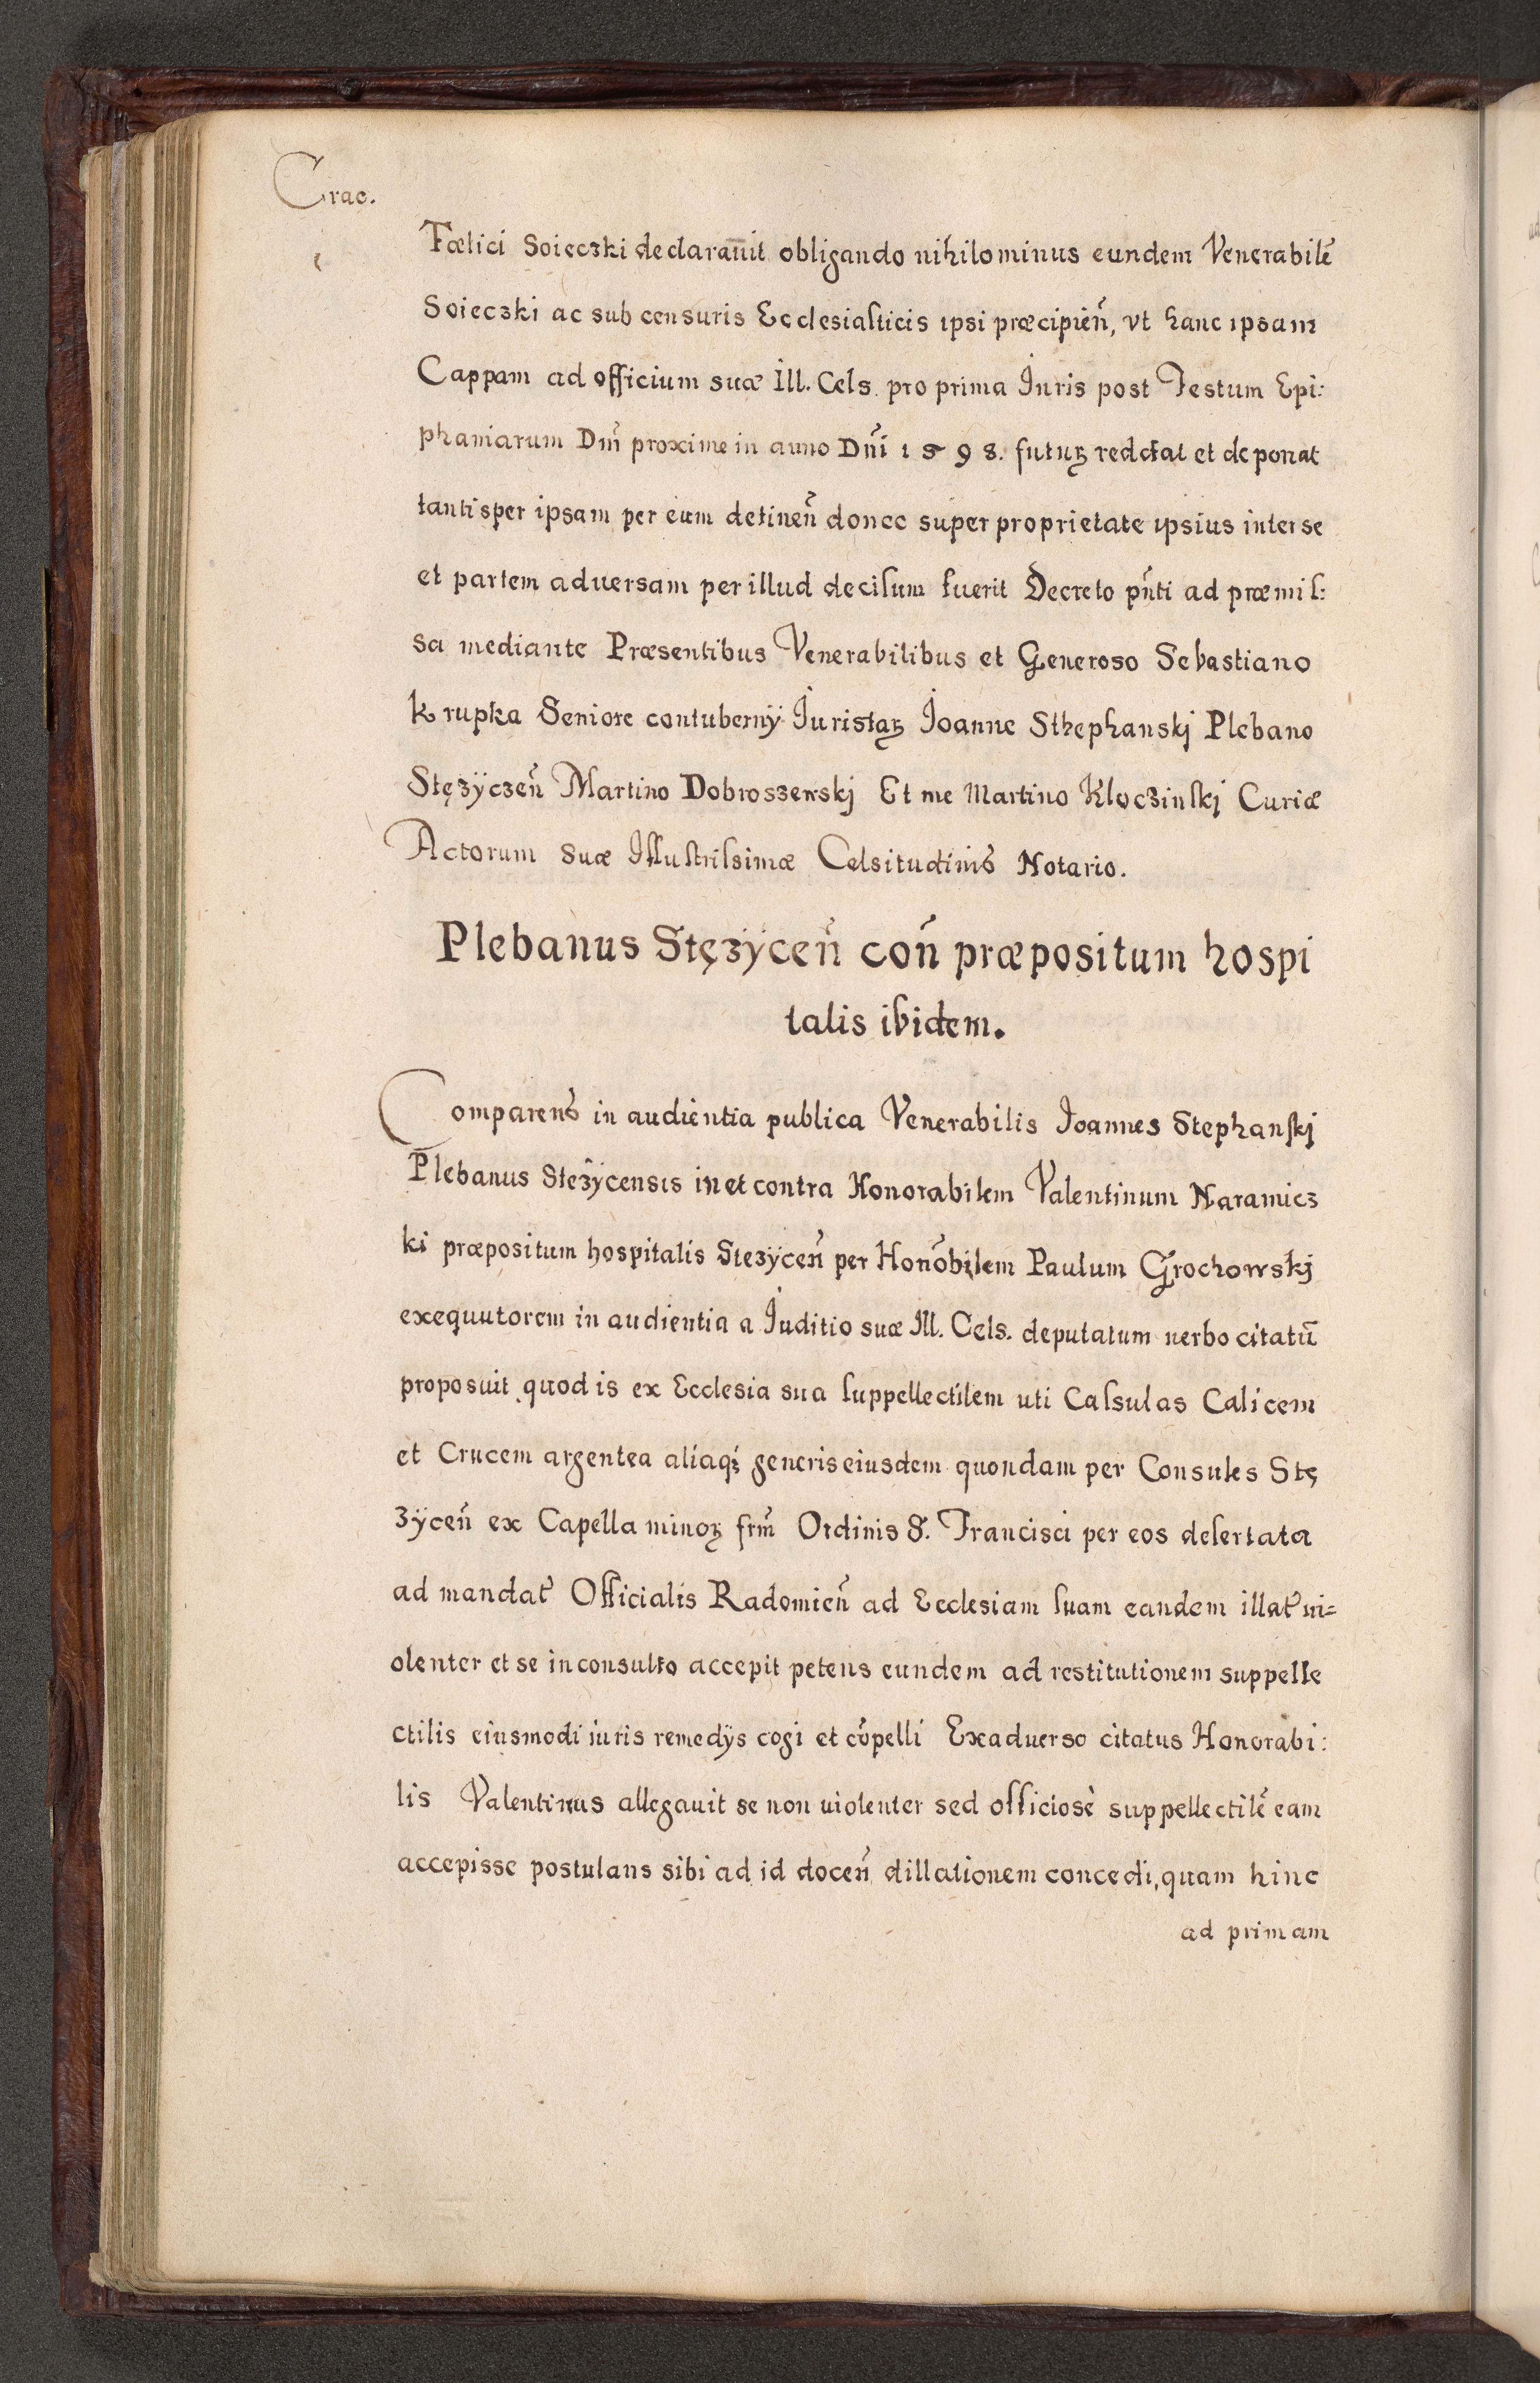 Crac.
Fœlici Soieczki declarauit obligando nihilominus eundem Venerabilē
Soieczki ac sub censuris Ecclesiasticis ipsi præcipień, vt hanc ipsam
Cappam ad officium suæ Ill. Cels. pro prima Iuris post Festum Epi:
phaniarum Dnī proxime in anno Dnī 1598. futuꝝ reddat et deponat
tantisper ipsam per eum detineń donec super proprietate ipsius inter se
et partem aduersam per illud decisum fuerit Decreto pńti ad præmiſ:
sa mediante Præsentibus Venerabilibus et Generoso Sebastiano
Krupka Seniore contubernÿ Iuristaꝝ Ioanne Sthephanskj Plebano
Stęzÿczeń Martino Dobroszewskj Et me Martino Kloczinſkj Curiæ
Actorum Suæ Illuſtriſsimæ Celsitudinis Notario.
Plebanus Stęzÿceń coń præpositum hospi
talis ibidem.
Comparens in audientia publica Venerabilis Ioannes Stephanſkj
Plebanus Stezÿcensis in et contra Honorabilem Valentinum Naramicz
ki præpositum hospitalis Stezÿceń per Honōbilem Paulum Grochowskj
exequutorem in audientia a Iuditio suæ Ill. Cels. deputatum uerbo citatū
proposuit quod is ex Ecclesia sua ſuppellectilem uti Caſsulas Calicem
et Crucem argentea aliaqꝫ generis eiusdem quondam per Consules Stę
zÿceń ex Capella minoꝝ frm̄ Ordinis S. Francisci per eos deſertata
ad mandat̄ Officialis Radomień ad Ecclesiam ſuam eandem illat̄ ui=
olenter et se inconsulto accepit petens eundem ad restitutionem suppelle
ctilis eiusmodi iuris remedÿs cogi et cōpelli Exaduerso citatus Honorabi:
lis Valentinus allegauit se non uiolenter sed officiosè suppellectilē eam
accepisse postulans sibi ad id doceń dillationem concedi, quam hinc
ad primam